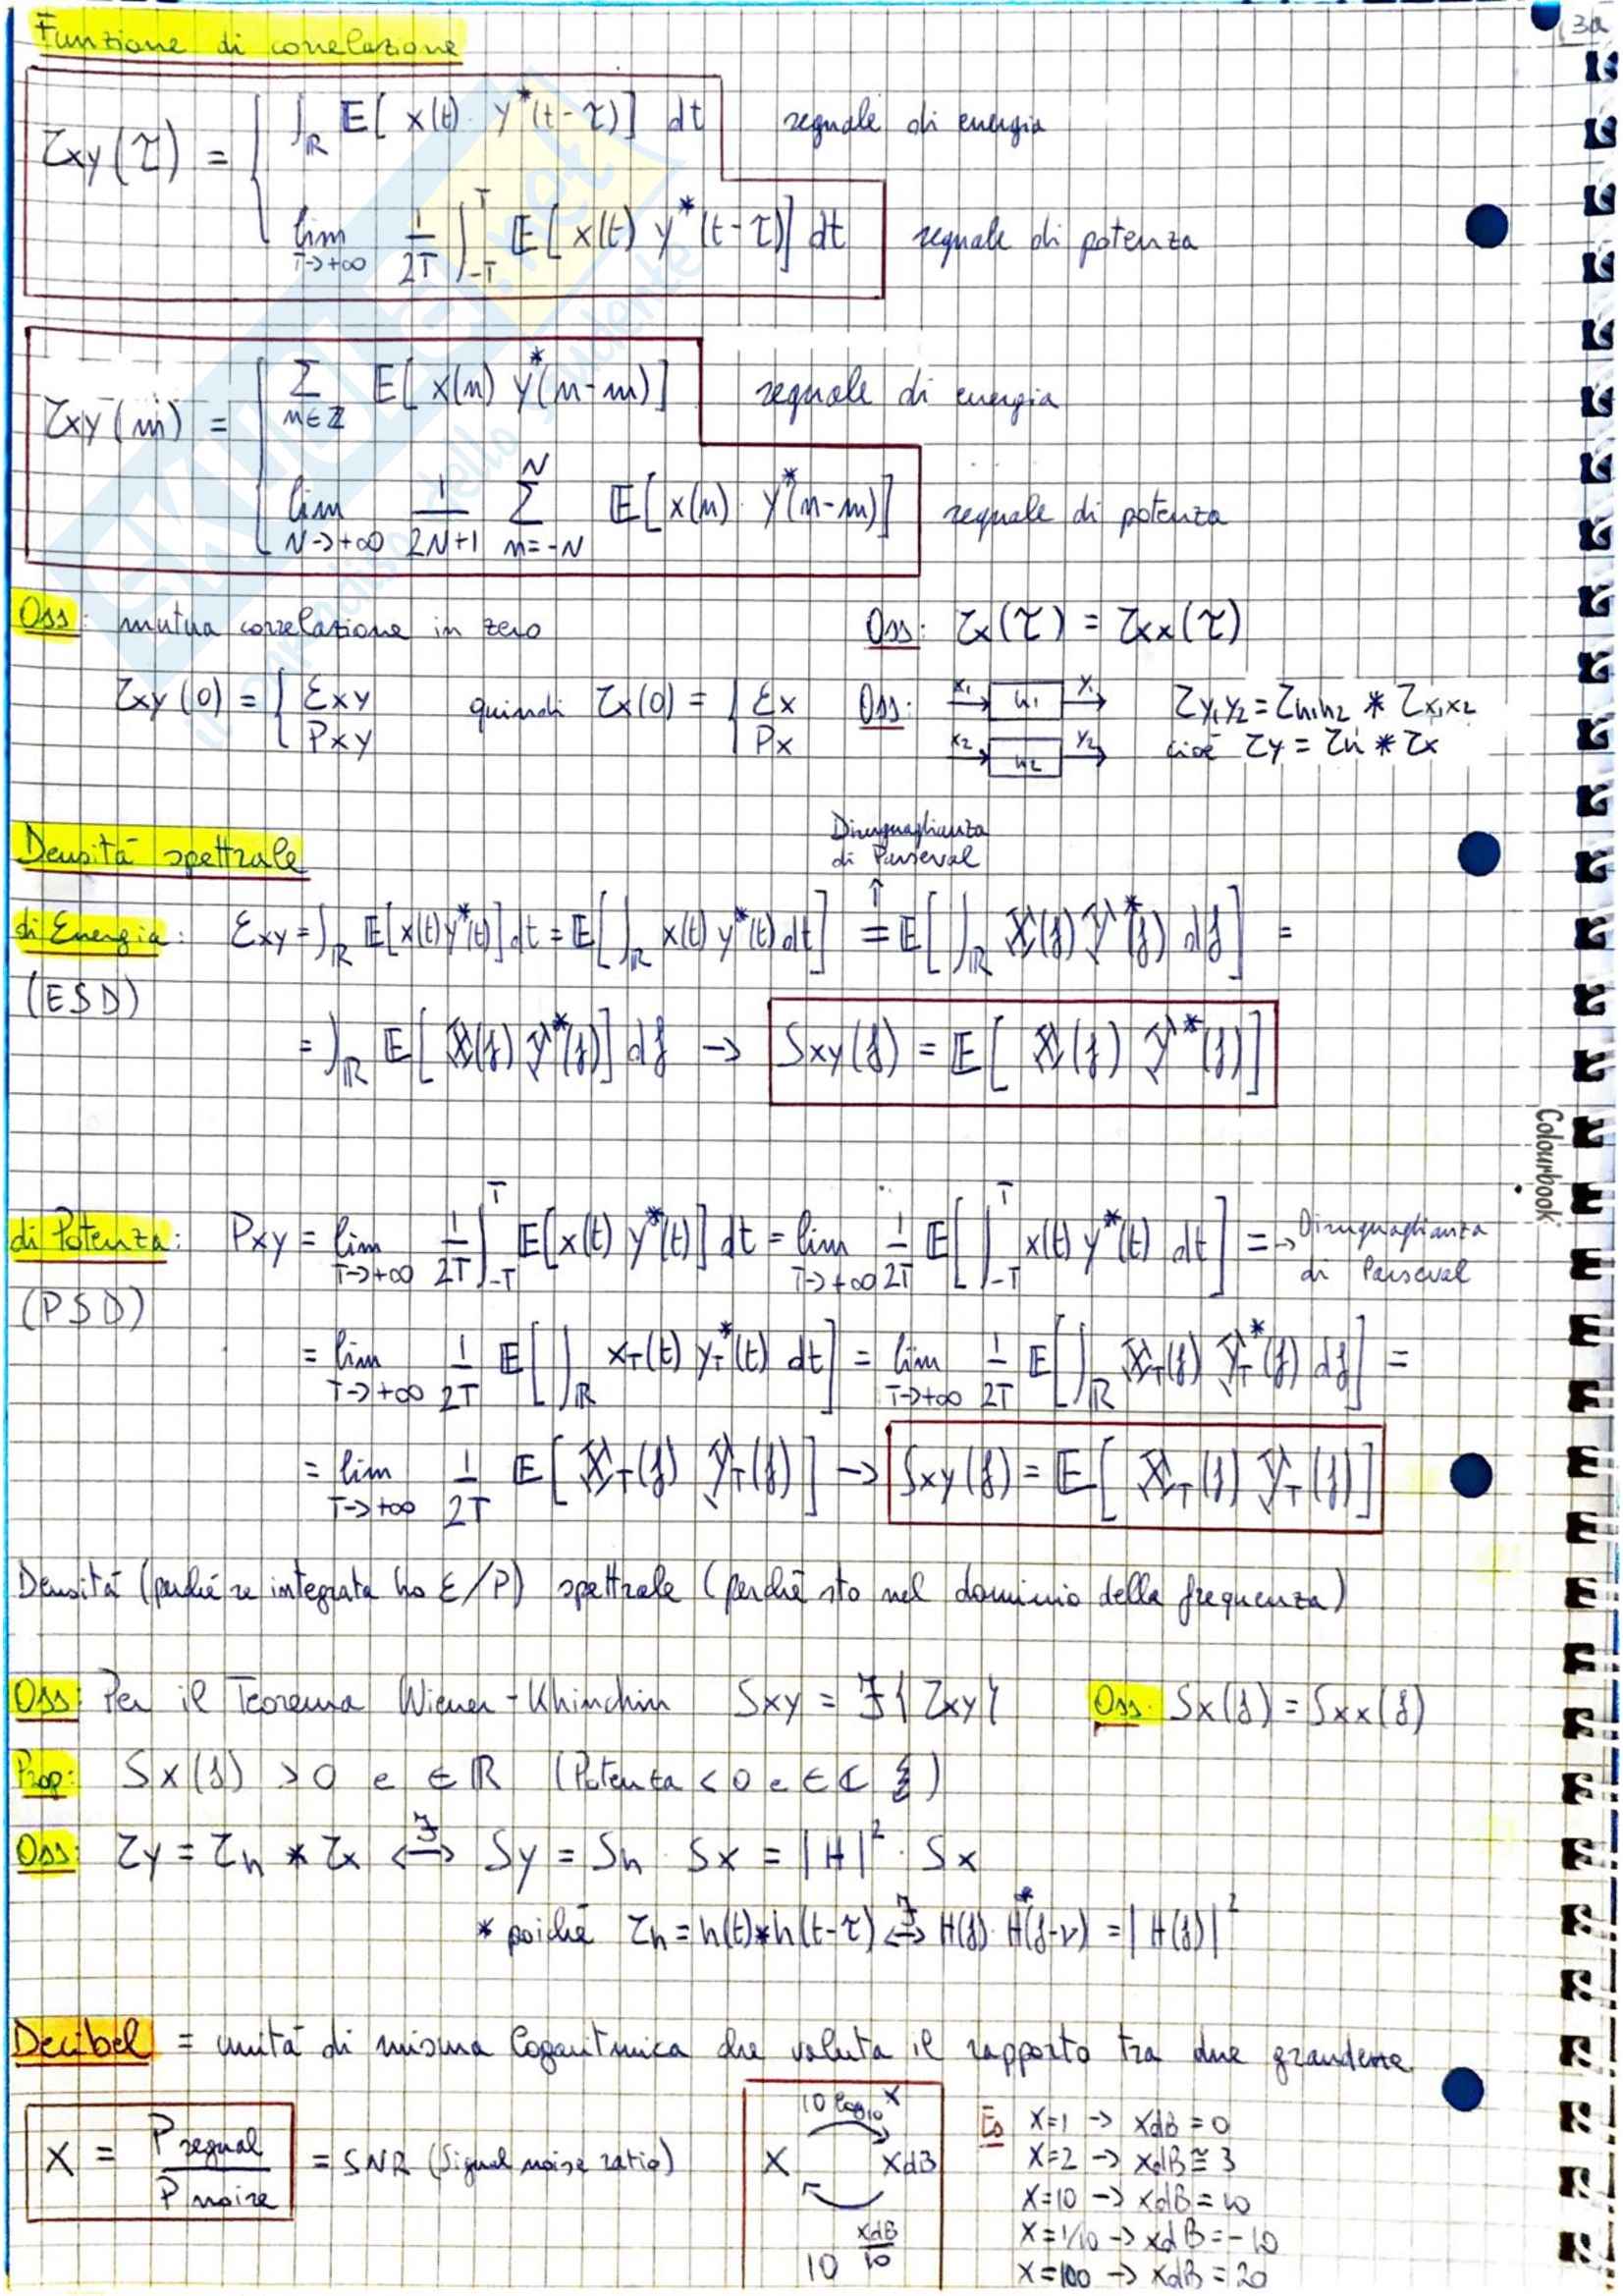 3a
Funzione di correlazione
rxy(τ) = { ∫ℝ E[x(t) · y*(t-τ)] dt segnale di energia
lim T->+∞ 1/2T ∫-T^T E[x(t) y*(t-τ)] dt segnale di potenza
rxy(m) = { Σ n∈ℤ E[x(n) y*(n-m)] segnale di energia
lim N->+∞ 1/2N+1 Σ n=-N^N E[x(n) · y*(n-m)] segnale di potenza
Oss: mutua correlazione in zero Oss: rx(τ) = rxx(τ)
rxy(0) = { Exy Pxy quindi rx(0) = { Ex Px Oss: x1 h1 y1 ry1y2 = rh1h2 * rx1x2
x2 h2 y2 cioè ry = rh * rx
Densità spettrale
Disuguaglianza
di Parseval
↑
di Energia: Exy = ∫ℝ E[x(t) y*(t)] dt = E[∫ℝ x(t) y*(t) dt] = E[∫ℝ X(f) Y*(f) df] =
(ESD)
= ∫ℝ E[X(f) Y*(f)] df -> Sxy(f) = E[X(f) Y*(f)]
Colourbook
di Potenza: Pxy = lim T->+∞ 1/2T ∫-T^T E[x(t) y*(t)] dt = lim T->+∞ 1/2T E[∫-T^T x(t) y*(t) dt] = -> Disuguaglianza
di Parseval
(PSD)
= lim T->+∞ 1/2T E[∫ℝ xT(t) yT*(t) dt] = lim T->+∞ 1/2T E[∫ℝ XT(f) YT*(f) df] =
= lim T->+∞ 1/2T E[XT(f) YT(f)] -> Sxy(f) = E[XT(f) YT(f)]
Densità (perché se integrata ho E/P) spettrale (perché sto nel dominio della frequenza)
Oss: Per il Teorema Wiener-Khinchin Sxy = F{rxy} Oss: Sx(f) = Sxx(f)
Prop: Sx(f) > 0 e ∈ ℝ (Potenza < 0 e ∈ ℂ )
Oss: ry = rh * rx <-F-> Sy = Sh · Sx = |H|² · Sx
* poiché rh = h(t)*h(t-τ) <-F-> H(f) · H*(f-ν) = |H(f)|²
Decibel = unità di misura logaritmica che valuta il rapporto tra due grandezze
X = Psegnal / Pnoise = SNR (Signal noise ratio)
10 log10 x
X XdB
10^(XdB/10)
Es X=1 -> XdB = 0
X=2 -> XdB ≅ 3
X=10 -> XdB = 10
X=1/10 -> XdB = -10
X=100 -> XdB = 20
SKUOLA.net
il paradiso dello studente